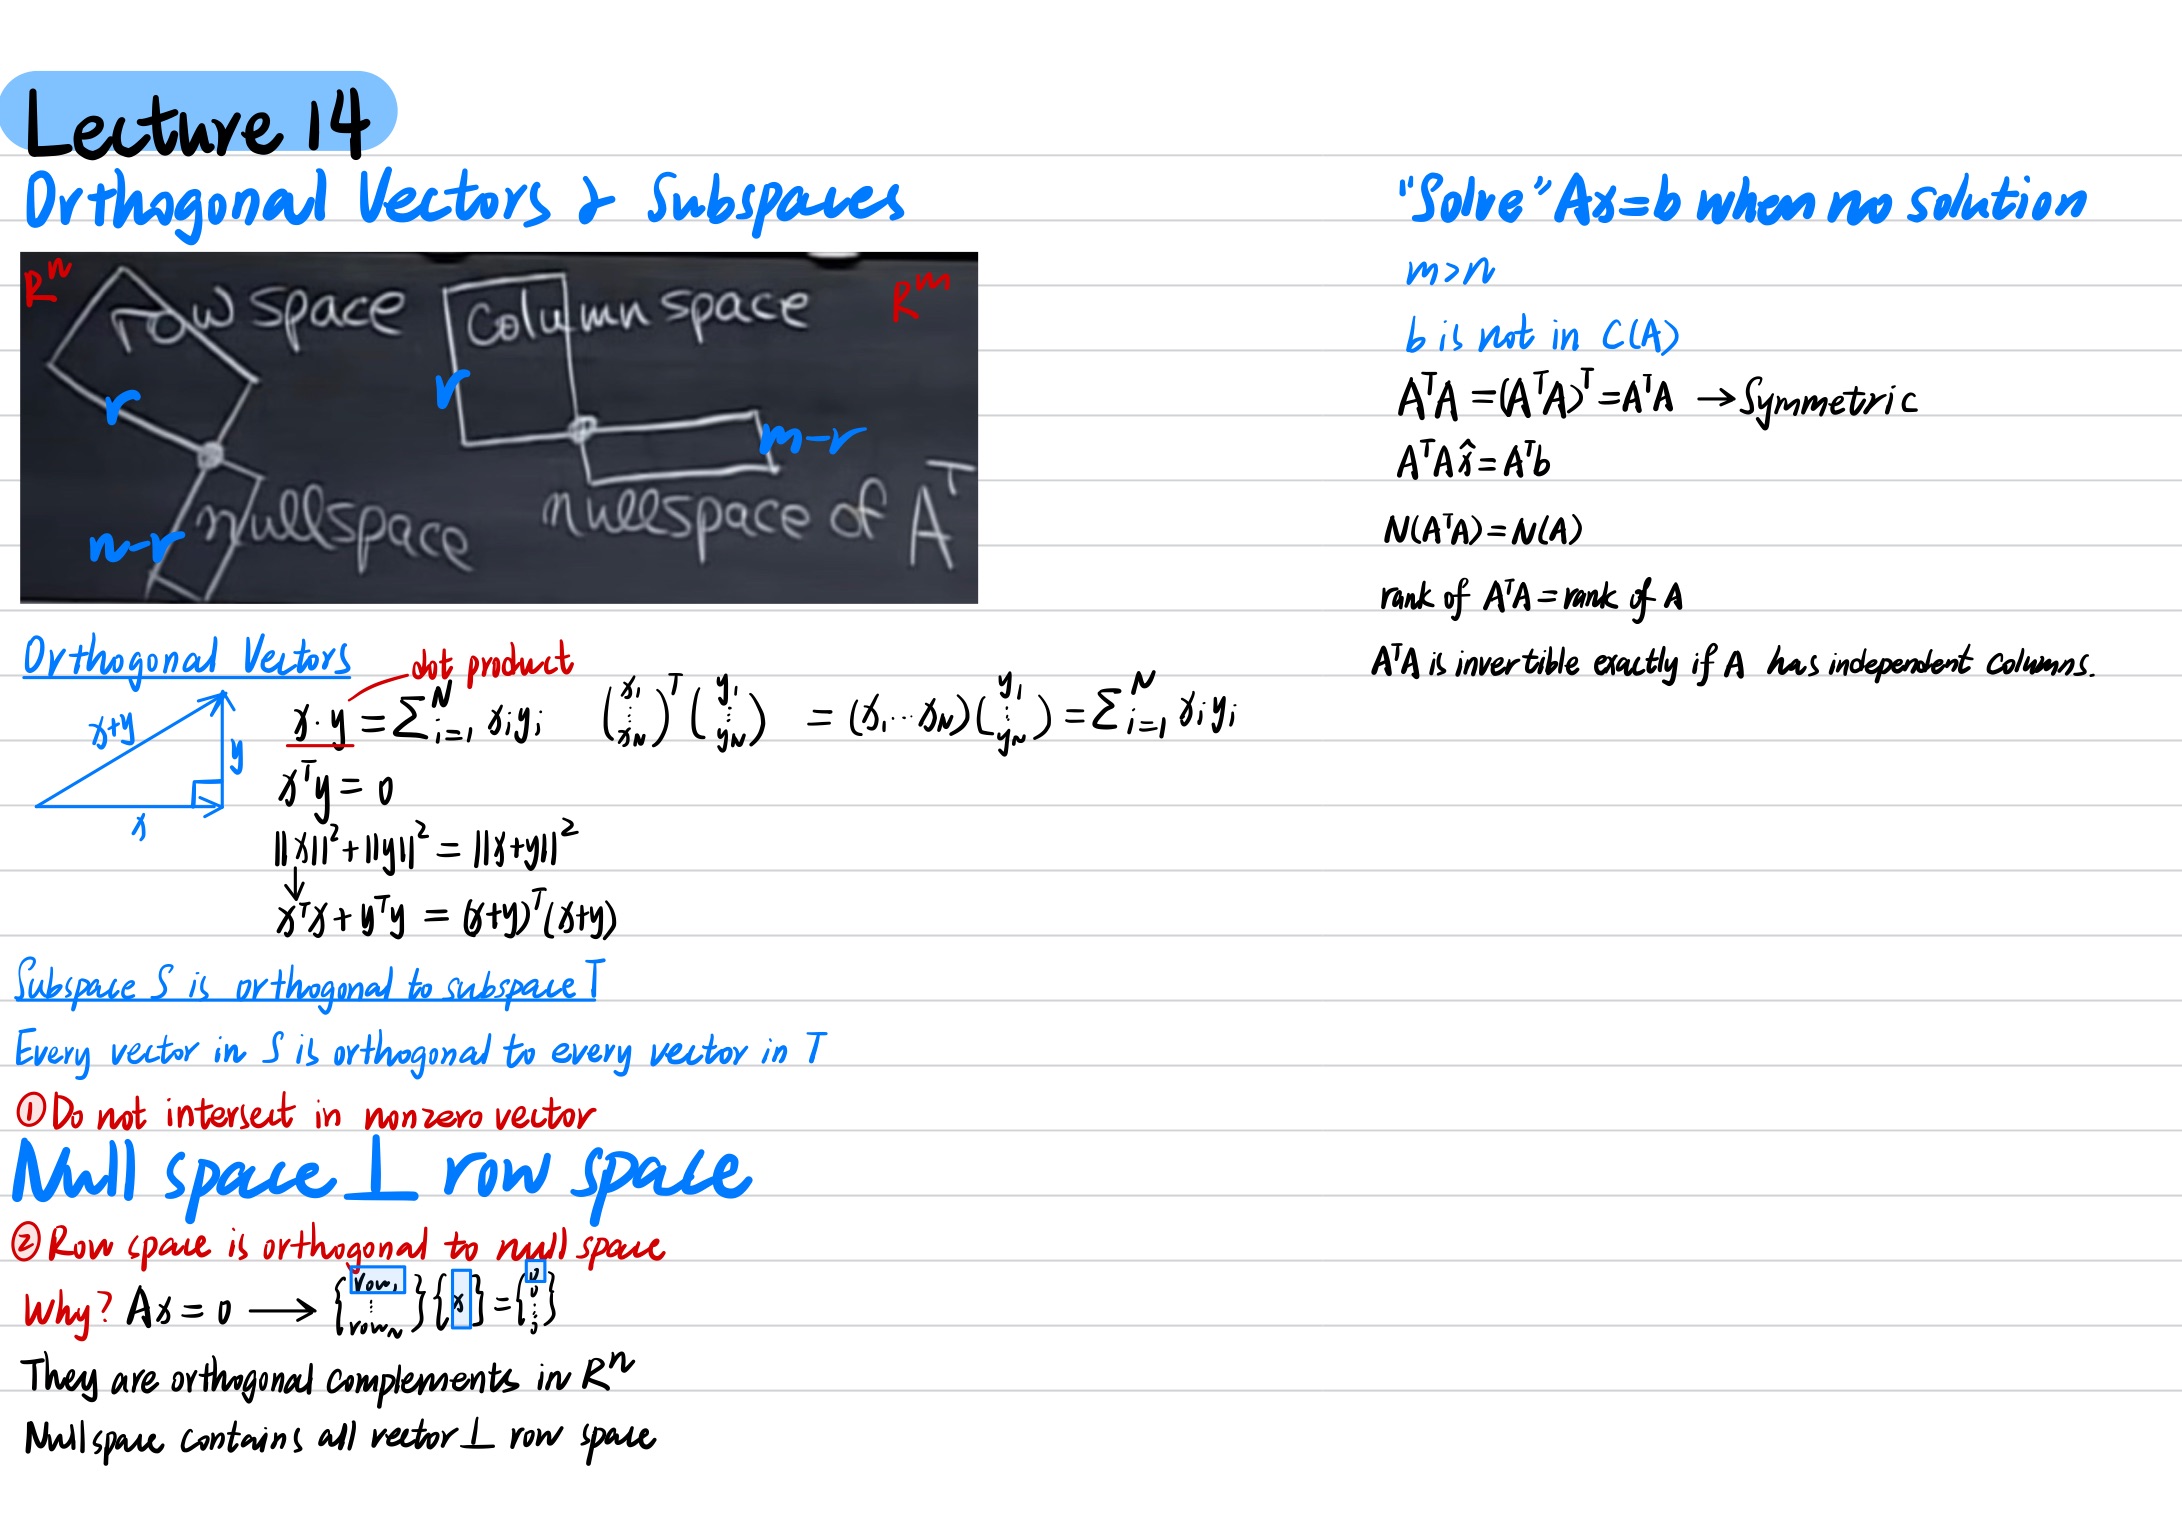 Lecture 14
Orthogonal Vectors & Subspaces
Rⁿ
row space
r
n-r
nullspace
column space
Rᵐ
r
m-r
nullspace of Aᵀ
Orthogonal Vectors
dot product
x+y
y
x
x·y = ∑ᵢ₌₁ᴺ xᵢyᵢ (x₁ ⋮ xN)ᵀ (y₁ ⋮ yN) = (x₁ ... xN)(y₁ ⋮ yN) = ∑ᵢ₌₁ᴺ xᵢyᵢ
xᵀy = 0
||x||² + ||y||² = ||x+y||²
↓
xᵀx + yᵀy = (x+y)ᵀ(x+y)
Subspace S is orthogonal to subspace T
Every vector in S is orthogonal to every vector in T
① Do not intersect in nonzero vector
Null space ⊥ row space
② Row space is orthogonal to null space
Why? Ax = 0 → {row₁ ⋮ rowN} {x} = {0 0 ⋮ 0}
They are orthogonal complements in Rⁿ
Nullspace contains all vector ⊥ row space
"Solve" Ax=b when no solution
m>n
b is not in C(A)
AᵀA = (AᵀA)ᵀ = AᵀA → Symmetric
AᵀAx̂ = Aᵀb
N(AᵀA) = N(A)
rank of AᵀA = rank of A
AᵀA is invertible exactly if A has independent columns.